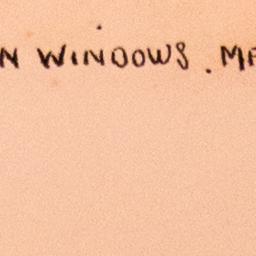 N WINDOWS. MA